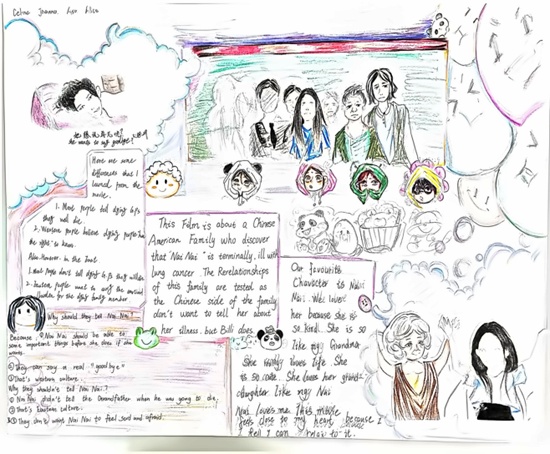 Celine Joanna
she wants to say goodbye!
Here are some
differences that I
learned from the
movie.
1. Most people tell dying
they will die.
2. Western people believe dying people have
the right to know.
1. Most people don't tell dying they will die
Why should they tell Nai Nai?
Because, Nai Nai should be able to
some important things before she dies if she
wants.
① They can say a real "good bye"
② That's western culture.
Why they shouldn't tell Nai Nai?
① Nai Nai didn't tell the Grandfather when he was going to die.
② That's Eastern culture.
③ They don't want Nai Nai to feel sad and afraid.
This Film is about a Chinese
American Family who discover
that "Nai Nai" is terminally, ill with
lung cancer. The Rerelationships
of this family are tested as
the Chinese side of the family
don't want to tell her about
her illness. but Billi does.
Our favourite
Character is Nai
Nai. We loves
her because she is
so kind. She is so
like my Grandma
She loves life. She
is so cute. She loves her grand-
daughter like my Nai
Nai loves me. This movie
feels close to my heart because I
feel I can relate to it.